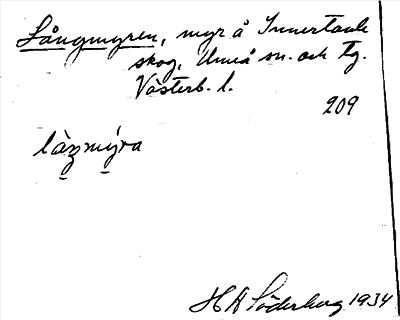 Långmyren, myr å Innertavle
skog, Umeå sn. och tg.
Västerb. l.
209
H A Söderberg 1934